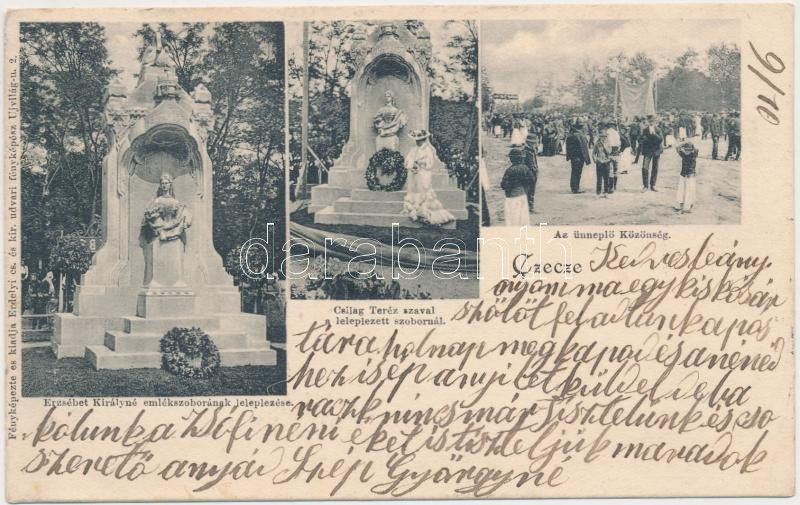 Fényképezte és kiadja Erdélyi cs. és kir. udvari fényképész Ujvilág-u. 2.
Erzsébet Királyné emlékszoborának leleplezése.
Csilag Teréz szaval
a leleplezett szobornál.
Az ünneplő Közönség.
9/10
darabanth
Czecze Kedves leány
nyom ma egy kis kosár
szölöt feladtunk apos
tára holnap megkapod és a néned
hez is ép anyi let küldel de ba
raczk nincs már tisztelunk és cso
kolunk a Zsófi néni éket is tiszteljük maradok
szerető anyád Szép Györgyné